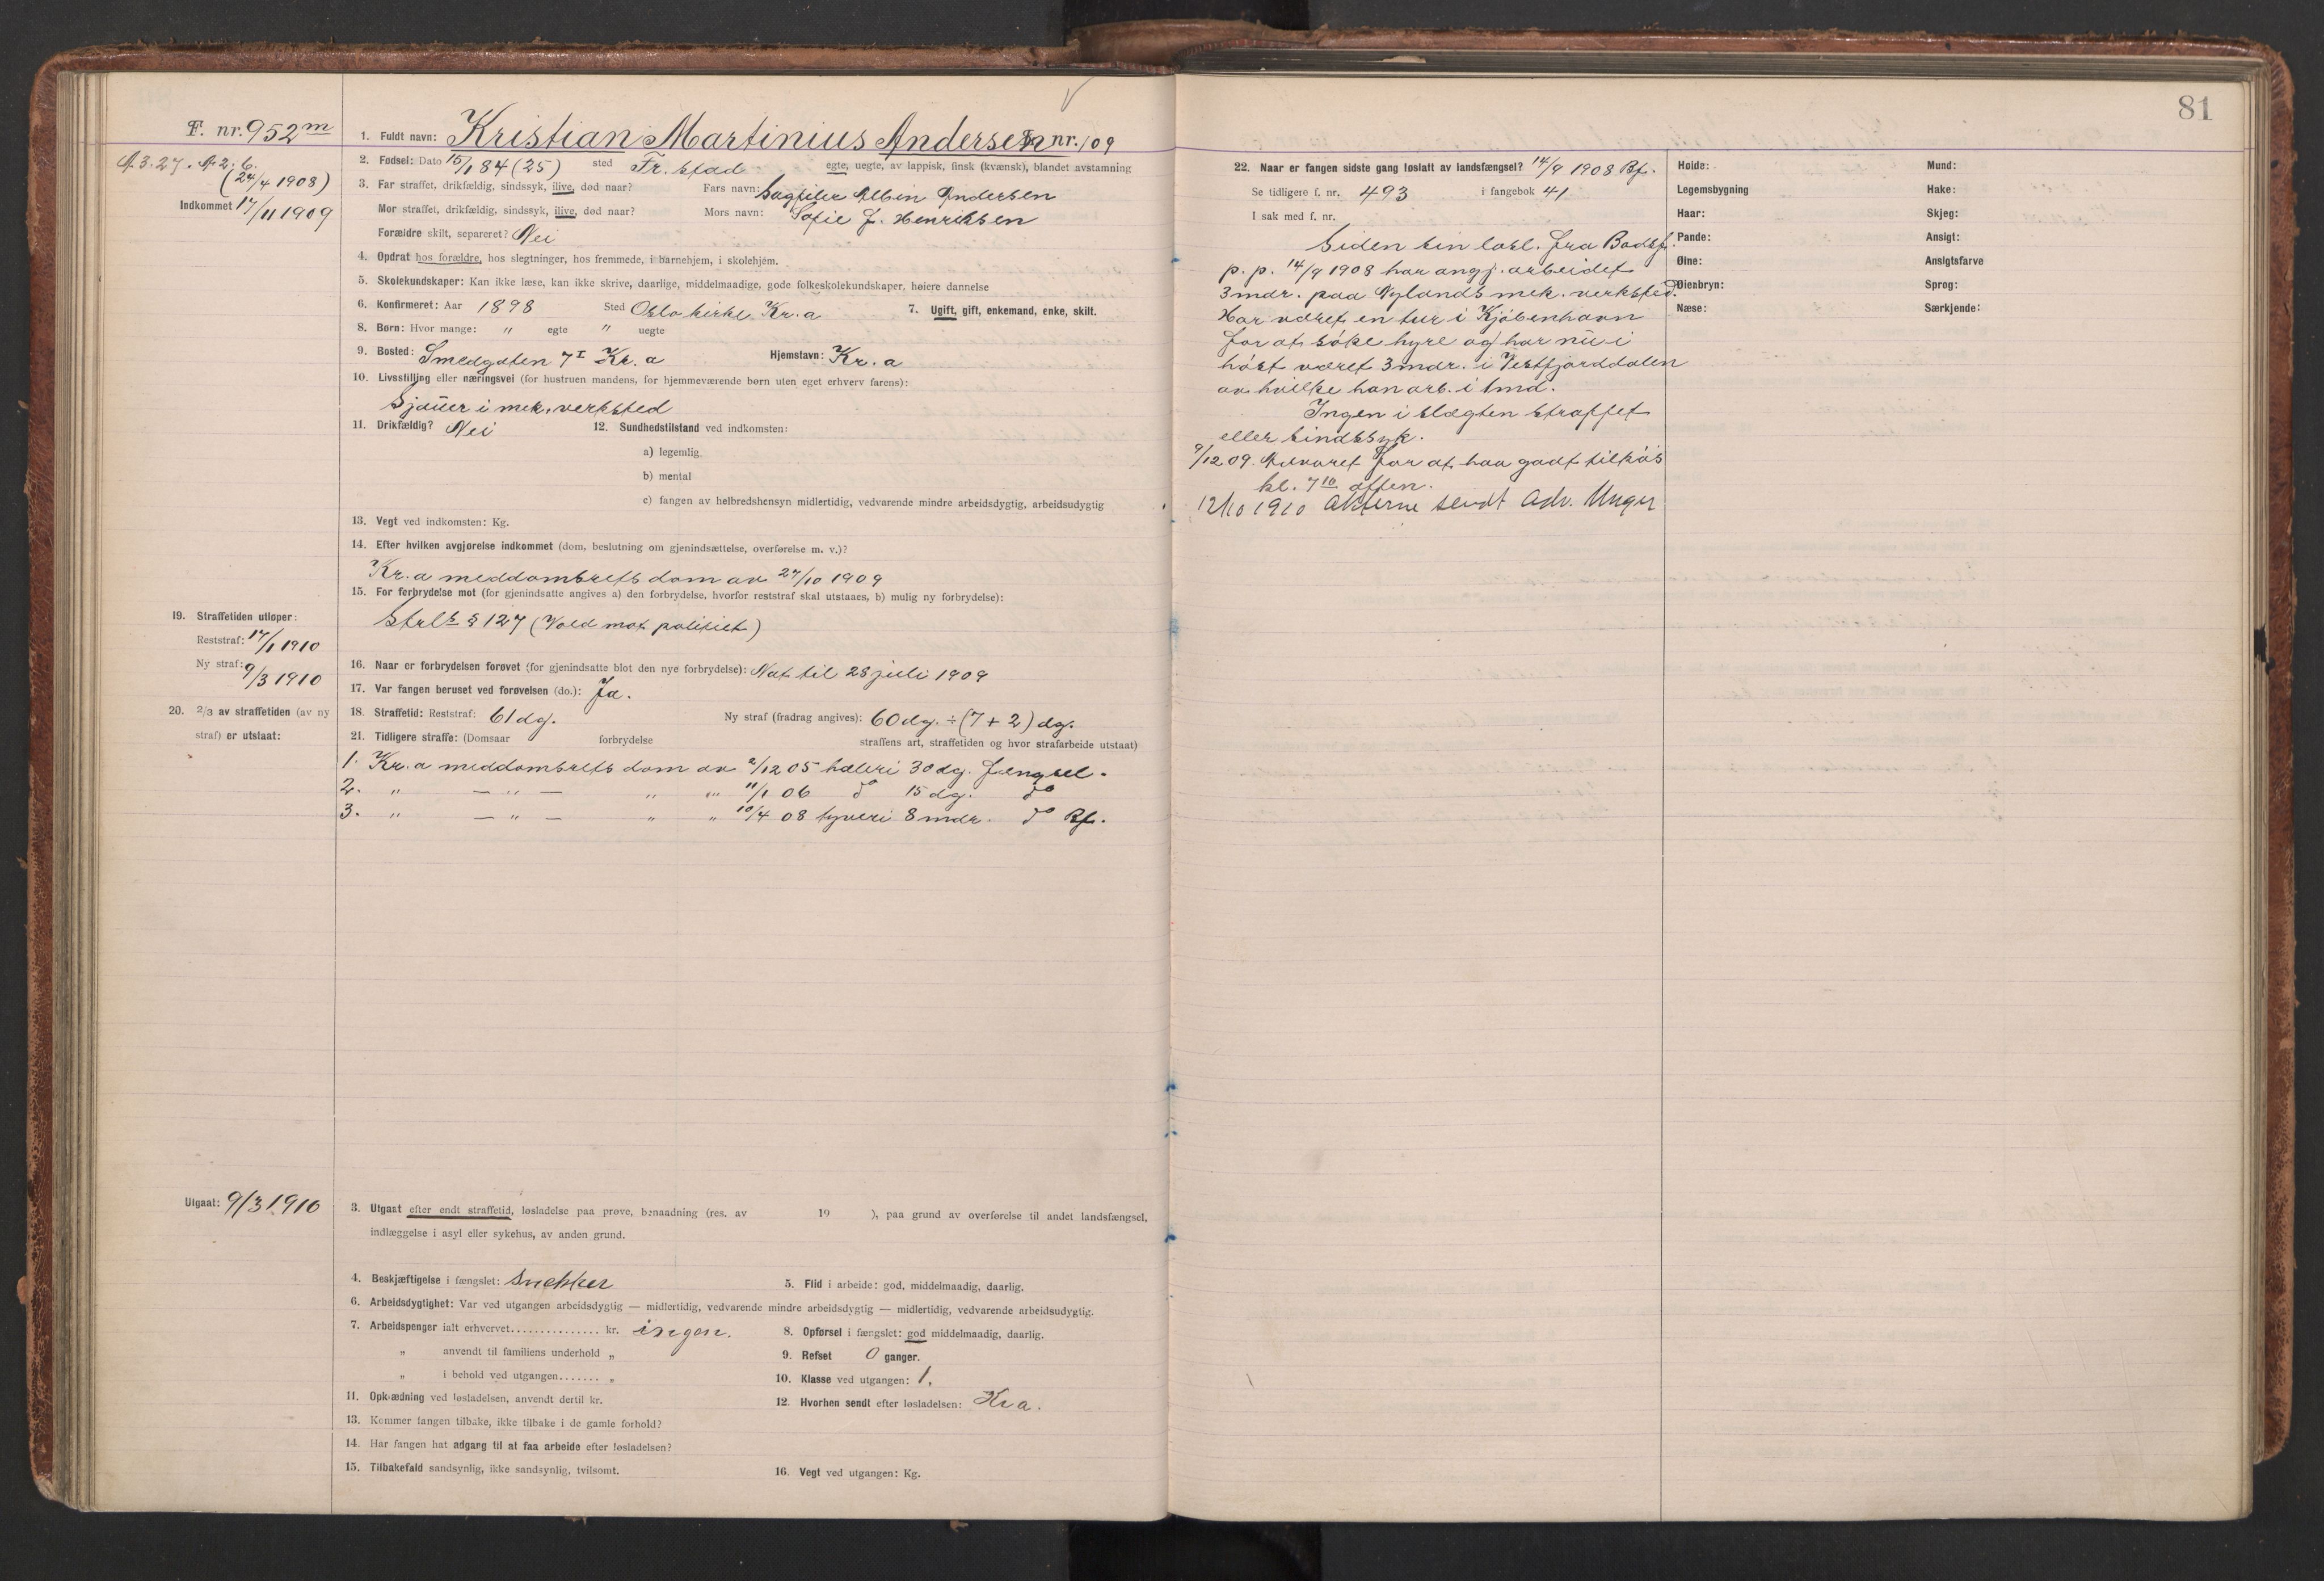 81
F. nr. 952 m
1. Fuldt navn: Kristian Martinius Andersen nr. 109
A. 3. 27. A 2: 6.
(24/4 1908)
Indkommet 17/11 1909
2. Fødsel: Dato 15/1 84 (25) sted Fr.stad egte, uegte, av lappisk, finsk (kvænsk), blandet avstamning
3. Far straffet, drikfældig, sindssyk, ilive, død naar? Fars navn: Sagfiler Albin Andersen
Mor straffet, drikfældig, sindssyk, ilive, død naar? Mors navn: Sofie J. Henriksen
Forældre skilt, separeret? Nei
4. Opdrat hos forældre, hos slegtninger, hos fremmede, i barnehjem, i skolehjem.
5. Skolekundskaper: Kan ikke læse, kan ikke skrive, daarlige, middelmaadige, gode folkeskolekundskaper, høiere dannelse
6. Konfirmeret: Aar 1898 Sted Oslo kirke Kr.a 7. Ugift, gift, enkemand, enke, skilt.
8. Børn: Hvor mange: " egte " uegte
9. Bosted: Smedgaten 7 I Kr.a Hjemstavn: Kr.a
10. Livsstilling eller næringsvei (for hustruen mandens, for hjemmeværende børn uten eget erhverv farens):
Sjauer i mek. verksted
11. Drikfældig? Nei 12. Sundhedstilstand ved indkomsten:
a) legemlig
b) mental
c) fangen av helbredshensyn midlertidig, vedvarende mindre arbeidsdygtig, arbeidsudygtig
13. Vegt ved indkomsten: Kg.
14. Efter hvilken avgjørelse indkommet (dom, beslutning om gjenindsættelse, overførelse m. v.)?
Kr.a meddomsrets dom av 27/10 1909
15. For forbrydelse mot (for gjenindsatte angives a) den forbrydelse, hvorfor reststraf skal utstaaes, b) mulig ny forbrydelse):
Strl's § 127 (Vold mot politiet)
19. Straffetiden utløper:
Reststraf: 17/1 1910
Ny straf: 9/3 1910
16. Naar er forbrydelsen forøvet (for gjenindsatte blot den nye forbrydelse): Nat til 28 juli 1909
17. Var fangen beruset ved forøvelsen (do.): Ja.
20. 2/3 av straffetiden (av ny
straf) er utstaat:
18. Straffetid: Reststraf: 61 dg. Ny straf (fradrag angives): 60 dg. ÷ (7 + 2) dg.
21. Tidligere straffe: (Domsaar forbrydelse straffens art, straffetiden og hvor strafarbeide utstaat)
1. Kr.a meddomsrets dom av 2/12 05 hæleri 30 dg. fengsel.
2. " — " — " " 11/1 06 do 15 dg. do
3. " — " — " " 10/4 08 tyveri 8 mdr. do Bf.
Utgaat: 9/3 1910
3. Utgaat efter endt straffetid, løsladelse paa prøve, benaadning (res. av 19 ), paa grund av overførelse til andet landsfængsel,
indlæggelse i asyl eller sykehus, av anden grund.
4. Beskjæftigelse i fængslet: Snekker 5. Flid i arbeide: god, middelmaadig, daarlig.
6. Arbeidsdygtighet: Var ved utgangen arbeidsdygtig — midlertidig, vedvarende mindre arbeidsdygtig — midlertidig, vedvarende arbeidsudygtig.
7. Arbeidspenger ialt erhvervet............... kr. ingen. 8. Opførsel i fængslet: god middelmaadig, daarlig.
„ anvendt til familiens underhold „ 9. Refset 0 ganger.
„ i behold ved utgangen....... „ 10. Klasse ved utgangen: 1.
11. Opklædning ved løsladelsen, anvendt dertil kr. 12. Hvorhen sendt efter løsladelsen: Kr a.
13. Kommer fangen tilbake, ikke tilbake i de gamle forhold?
14. Har fangen hat adgang til at faa arbeide efter løsladelsen?
15. Tilbakefald sandsynlig, ikke sandsynlig, tvilsomt. 16. Vegt ved utgangen: Kg.
22. Naar er fangen sidste gang løslatt av landsfængsel? 14/9 1908 Bf.
Se tidligere f. nr. 493 i fangebok 41
I sak med f. nr.
Siden sin løsl. fra Bodsf.
p. p. 14/9 1908 har angj. arbeidet
3 mdr. paa Nylands mek. verksted.
Har været en tur i Kjöbenhavn
for at söke hyre og har nu i
höst været 3 mdr. i Vestfjorddalen
av hvilke han arb. i 1 md.
Ingen i slægten straffet
eller sindssyk.
9/12 09. Advaret for at haa gaat tilköis
kl. 7 10 aften.
12/10 1910 Akterne sendt Adv. Unger
Høide:
Legemsbygning
Haar:
Pande:
Øine:
Øienbryn:
Næse:
Mund:
Hake:
Skjeg:
Ansigt:
Ansigtsfarve
Sprog:
Særkjende: